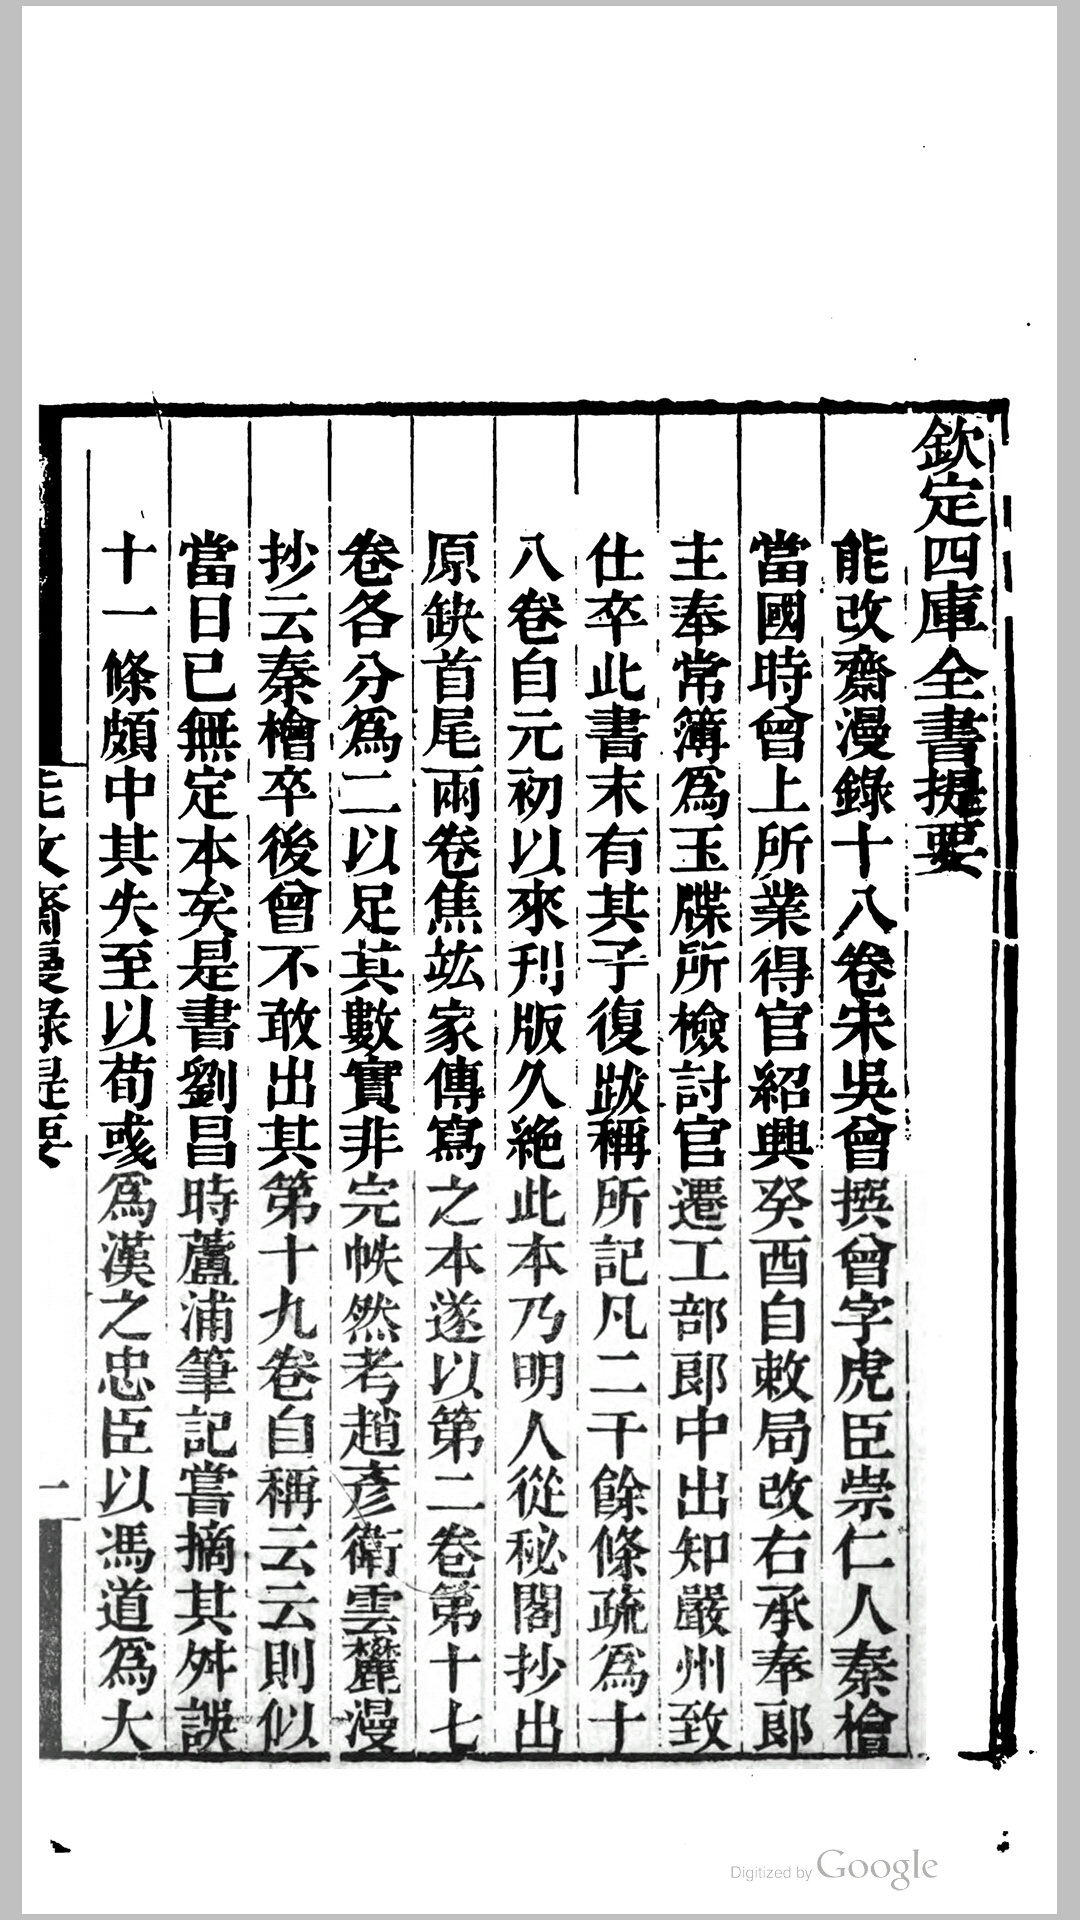 欽定四庫全書提要
能改齋漫錄十八卷宋吳曾撰曾字虎臣崇仁人秦檜
當國時曾上所業得官紹興癸酉自敕局改右承奉郎
主奉常簿爲玉牒所檢討官遷工部郎中出知嚴州致
仕卒此書末有其子復跋稱所記凡二千餘條疏爲十
八卷自元初以來刋版久絶此本乃明人從秘閣抄出
原缺首尾兩卷焦竑家傳寫之本遂以第二卷第十七
卷各分爲二以足其數實非完帙然考趙彥衛雲麓漫
抄云秦檜卒後曾不敢出其第十九卷自稱云云則似
當日已無定本矣是書劉昌時蘆浦筆記嘗摘其舛誤
十一條頗中其失至以荀彧爲漢之忠臣以馮道爲大
能改齋漫錄提要
一
Digitized by Google